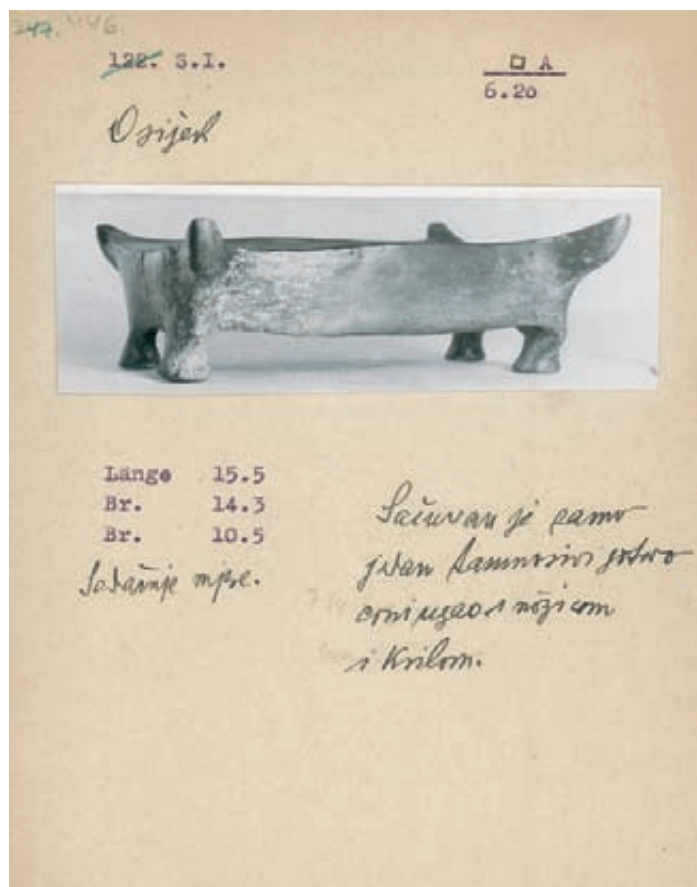 347. 446.
122. S.I.
□ A
6.20
Osijek
Länge 15.5
Br. 14.3
Br. 10.5
Sadašnje mjere.
Sačuvan je samo
jedan tamnosivi gotovo
crni ugao s nožicom
i krilom.